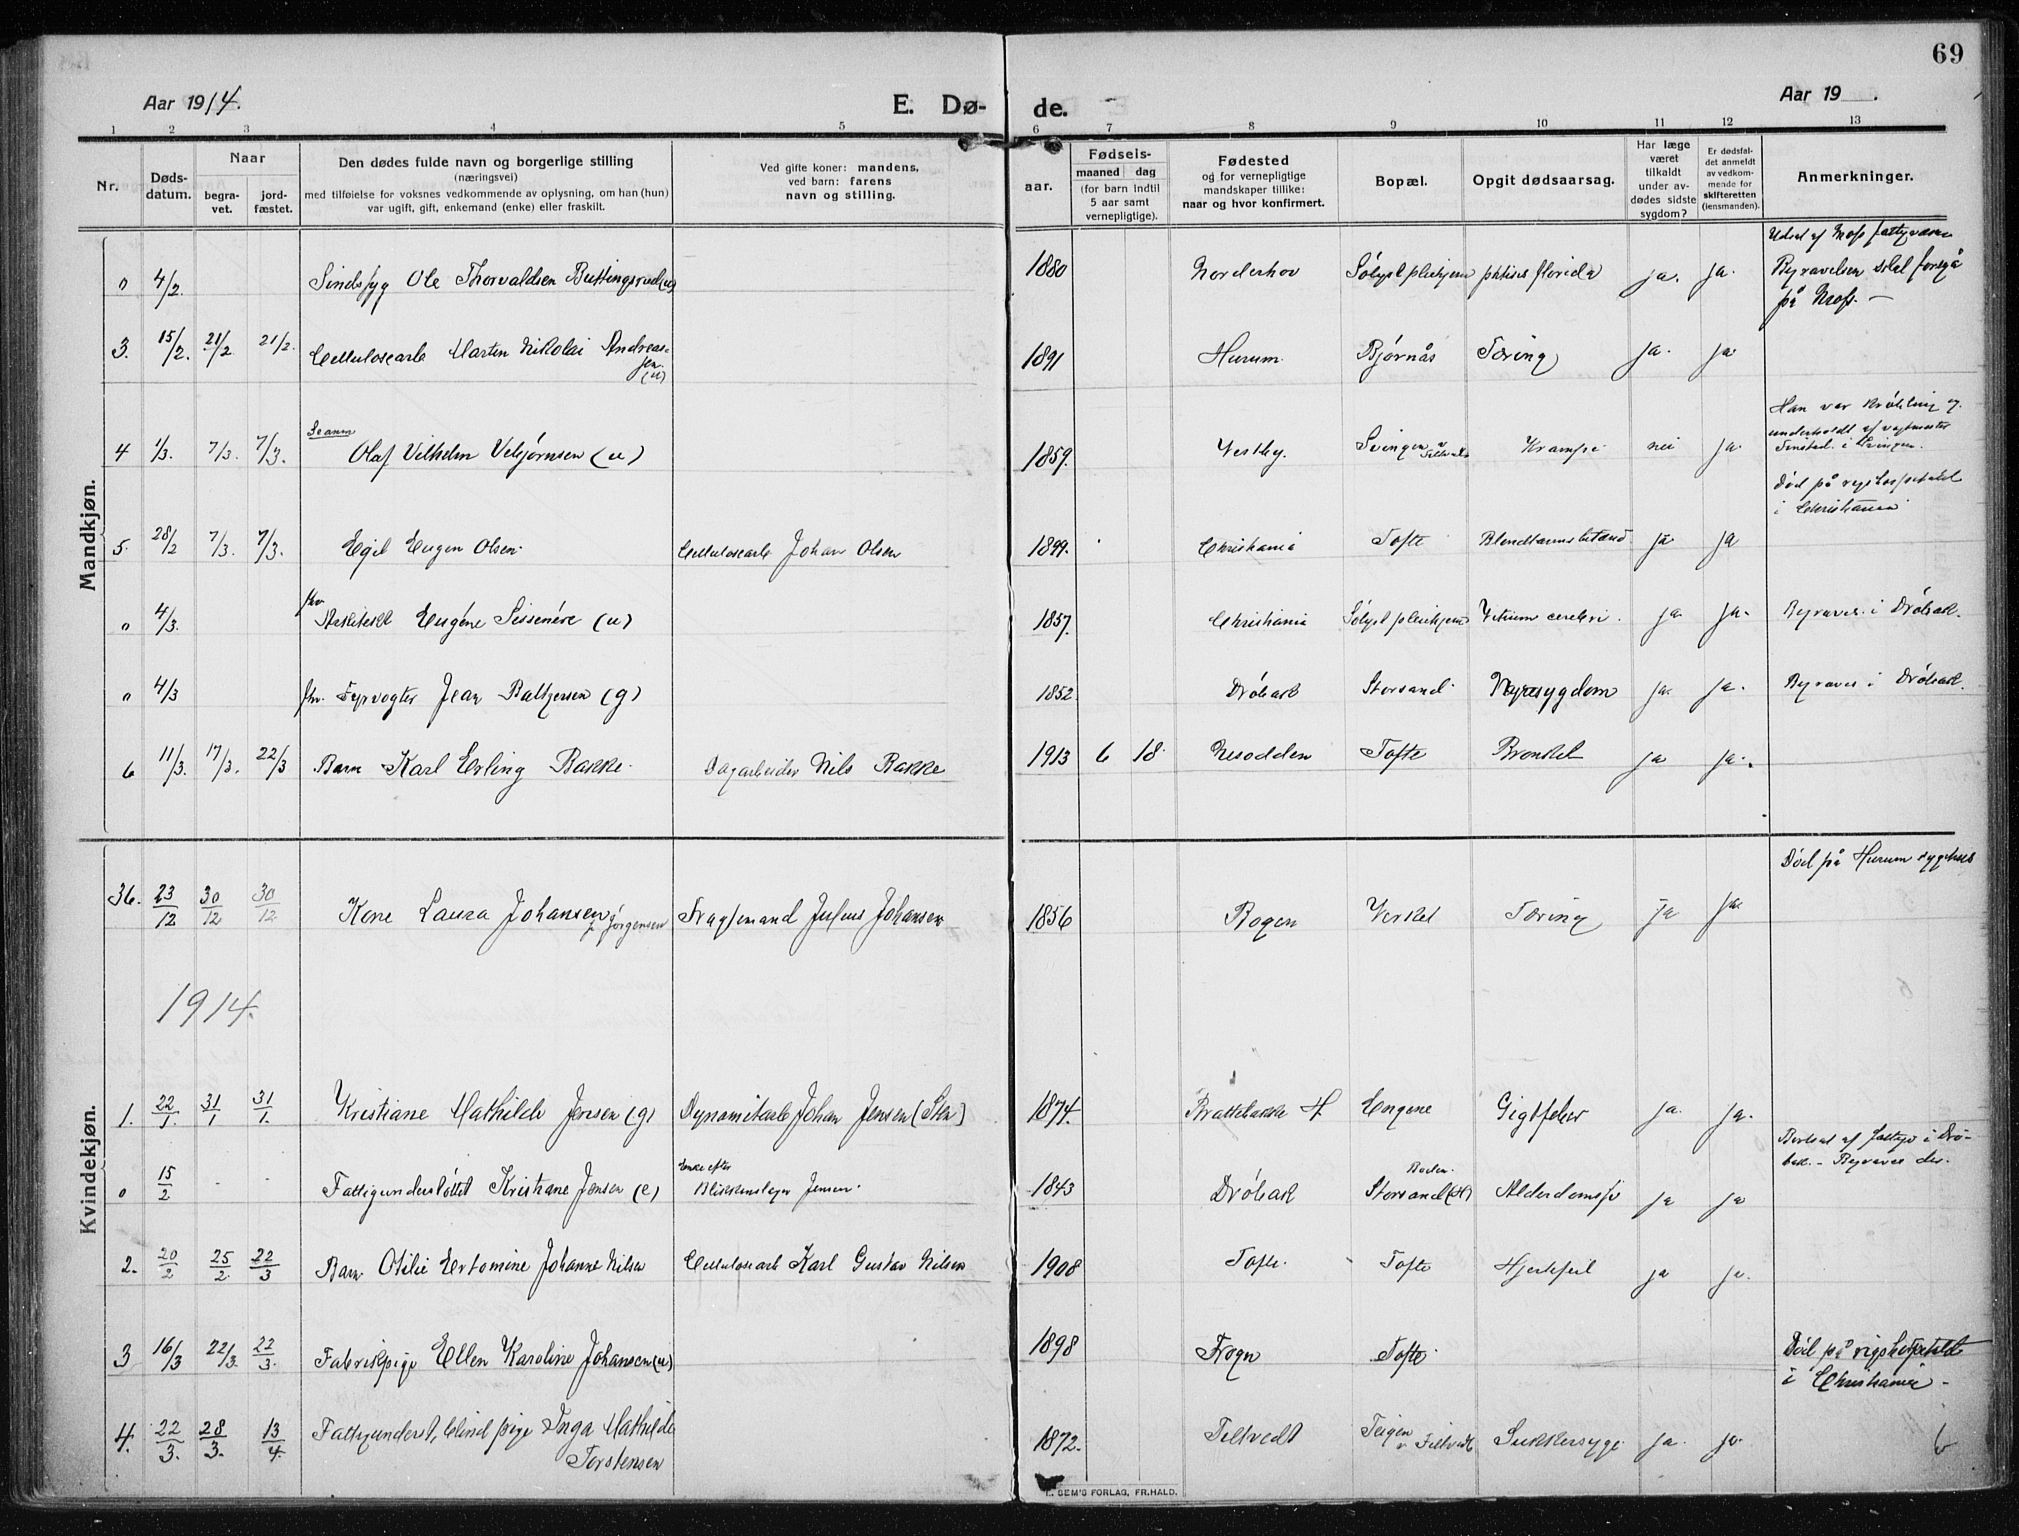 69
Aar 1914.
E. Dø-
de.
Aar 19 .
1 2 3 4 5 6 7 8 9 10 11 12 13
Nr.
Døds-
datum.
Naar
begra-
vet.
jord-
fæstet.
Den dødes fulde navn og borgerlige stilling
(næringsvei)
med tilføielse for voksnes vedkommende av oplysning, om han (hun)
var ugift, gift, enkemand (enke) eller fraskilt.
Ved gifte koner: mandens,
ved barn: farens
navn og stilling.
aar.
Fødsels-
maaned dag
(for barn indtil
5 aar samt
vernepligtige).
Fødested
og for vernepligtige
mandskaper tillike:
naar og hvor konfirmert.
Bopæl.
Opgit dødsaarsag.
Har læge
været
tilkaldt
under av-
dødes sidste
sygdom?
Er dødsfal-
det anmeldt
av vedkom-
mende for
skifteretten
(lensmanden).
Anmerkninger.
Mandkjøn.
0 4/2. Sindssyg Ole Thorvaldsen Buttingsrud (u) 1880 Norderhov phtisis florida ja. ja.
Begravelsen skal foregå
på Moss. —
3. 15/2. 21/2 21/2. Cellulosearb Martin Nikolai Andreas-
sen.
(u)
1891 Hurum. Bjørnås Tæring ja. ja.
4 1/3. 7/3. 7/3. Olaf Vilhelm Vebjørnsen (u) 1859. Vestby. Svingen Krampe nei ja.
Han var Krøbling og
underholdt af
i Svingen.
5. 28/2 7/3. 7/3. Egil Eugen Olsen. Cellulosearb Johan Olsen 1899. Christiania Tofte ja ja
Død på rigshospitalet
i Christiania
0 4/3. Arkitekt Eugéne Sissenére (u) 1857. Christiania Vitium cerebri. ja ja. Begraves i Drøbak.
0 4/3 fhv. Fyrvogter Jean Baltzersen (g) 1852. Drøbak Storsand. Nyresygdom ja. ja. Begraves i Drøbak.
6 11/3. 17/3. 22/3 Barn Karl Erling Bakke. Dagarbeider Nils Bakke 1913 6 18. Nesodden Tofte Bronkit ja ja.
Kvindekjøn.
36. 23/12 30/12 30/12 Kone Laura Johansen f. Jørgensen Fragtmand Julius Johansen 1856 Bogen Verket Tæring ja ja.
Død på Hurum sygehus
1914.
1. 22/1. 31/1 31/1. Kristiane Mathilde Jensen (g) Dynamitarb Johan Jensen (Sten) 1874. Brattebakke H. Engene Gigtfeber ja. ja.
0 15/2 - - Fattigunderstøttet Kristiane Jensen (e) Enke efter
Blikkenslager Jensen. 1843 Drøbak Storsand (H) Alderdomssv ja ja
Bortsat af fattigv i Drø-
bak. - Begraves der.
2. 20/2 25/2 22/3 Barn Otilie Ertomine Johanne Nilsen Cellulosearb Karl Gustav Nilsen 1908 Tofte. Tofte Hjertefeil ja ja.
3 16/3 22/3. 22/3. Fabrikpige Ellen Karoline Johansen (u) 1898 Frogn Tofte.
Død på rigshospitalet
i Christiania -
4. 22/3. 28/3. 13/4 Fattigunderst, blind pige Inga Mathilde
Torstensen
1872. Filtvedt Teigen
v. Filtvedt Sukkersyge ja. ja.
6
E. SEM'S FORLAG, FR.HALD.